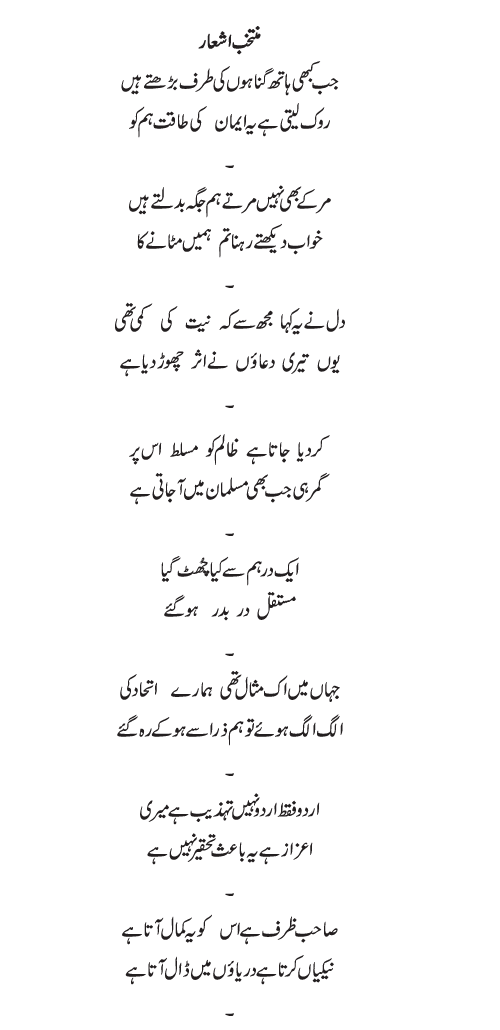 منتخب اشعار
جب کبھی ہاتھ گناہوں کی طرف بڑھتے ہیں
روک لیتی ہے یہ ایمان کی طاقت ہم کو
۔
مر کے بھی نہیں مرتے ہم جگہ بدلتے ہیں
خواب دیکھتے رہنا تم ہمیں مٹانے کا
۔
دل نے یہ کہا مجھ سے کہ نیت کی کمی تھی
یوں تیری دعاؤں نے اثر چھوڑ دیا ہے
۔
کر دیا جاتا ہے ظالم کو مسلط اس پر
گمرہی جب بھی مسلمان میں آ جاتی ہے
۔
ایک در ہم سے کیا چھٹ گیا
مستقل در بدر ہو گئے
۔
جہاں میں اک مثال تھی ہمارے اتحاد کی
الگ الگ ہوئے تو ہم ذرا سے ہو کے رہ گئے
۔
اردو فقط اردو نہیں تہذیب ہے میری
اعزاز ہے یہ باعث تحقیر نہیں ہے
۔
صاحب ظرف ہے اس کو یہ کمال آتا ہے
نیکیاں کرتا ہے دریاؤں میں ڈال آتا ہے
۔